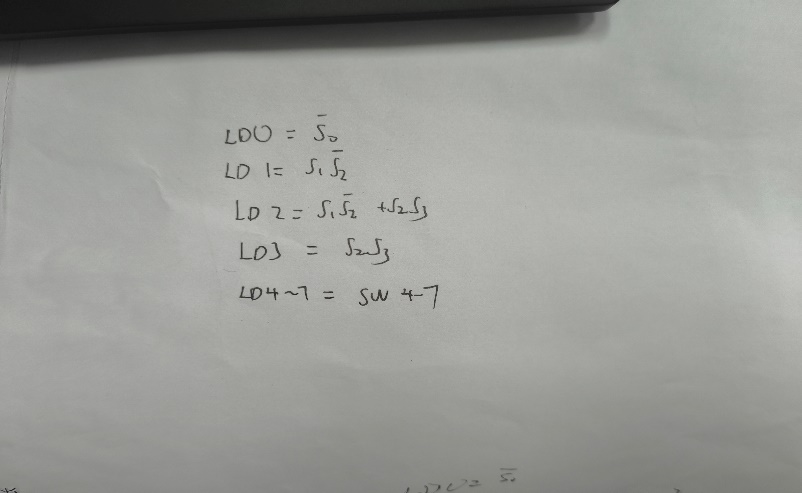 LD0 = S̄₀
LD 1= S₁S̄₂
LD 2 = S₁S̄₂ +S₂S₃
LD3 = S₂S₃
LD4~7 = SW 4-7